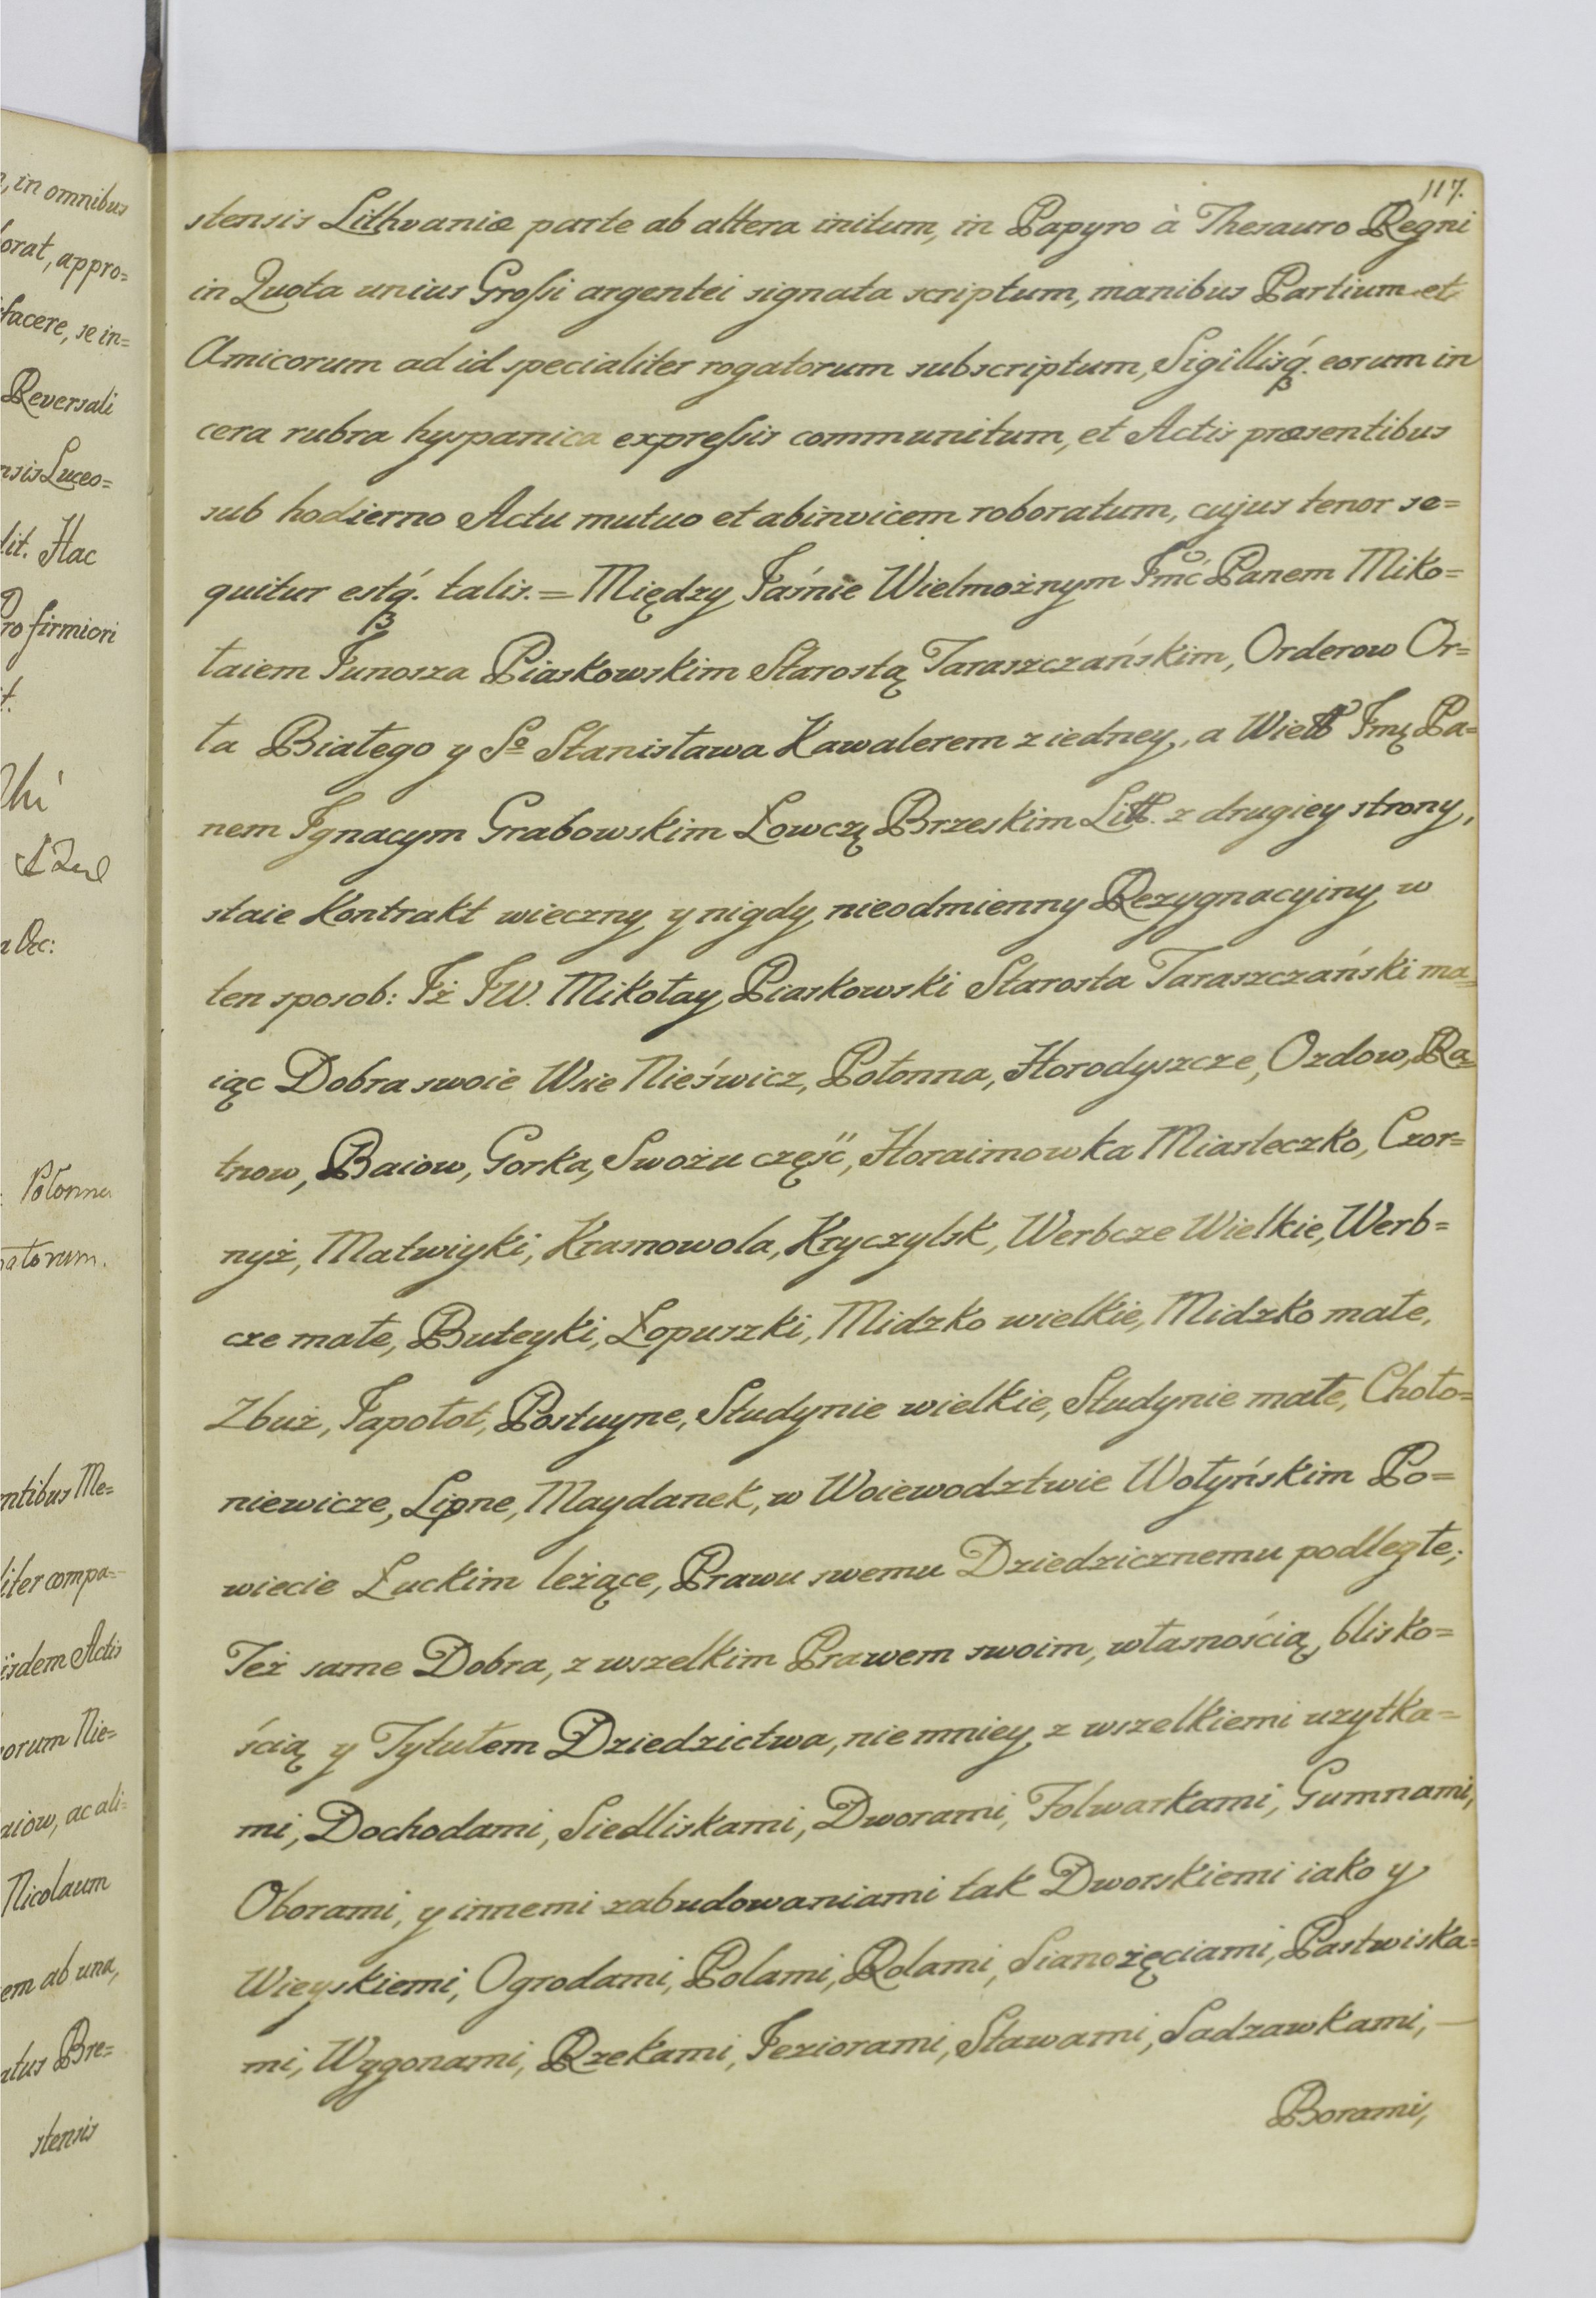 117.
stensis Lithvaniæ parte ab altera initum, in Papyro à Thesauro Regni
in Quota unius Grossi argentei signata scriptum, manibus Partium et
Amicorum ad id specialiter rogatorum subscriptum, Sigillisq́. eorum in
cera rubra hyspanica expressis communitum, et Actis præsentibus
sub hodierno Actu mutuo et abinvicem roboratum, cujus tenor se=
quitur estq́. talis. = Między Jaśnie Wielmożnym Jmć Panem Miko=
łaiem Junosza Piaskowskim Starostą Taraszczańskim, Orderow Or=
ła Białego y So Stanisława Kawalerem z iedney, a Wielb Jmę Pa=
nem Ignacym Grabowskim Łowczę Brzeskim Litt. z drugiey strony,
staie Kontrakt wieczny y nigdy nieodmienny Rezygnacyiny w
ten sposob: Jż JW. Mikołay Piaskowski Starosta Taraszczański ma=
iąc Dobra swoie Wsie Nieświcz, Połonna, Horodyszcze, Ozdow, Ra=
tnow, Baiow, Gorka, Swożu część, Horaimowka Miasteczko, Czor=
nyż, Matwiyki, Krasnowola, Kryczylsk, Werbcze Wielkie, Werb=
cze małe, Buteyki, Łopuszki, Midzko wielkie, Midzko małe,
Zbuż, Japołot, Postuyne, Studynie wielkie, Studynie małe, Choło=
niewicze, Lipne, Maydanek, w Woiewodztwie Wołyńskim Po=
wiecie Łuckim leżące, Prawu swemu Dziedzicznemu podległe;
Też same Dobra, z wszelkim Prawem swoim, własnością, blisko=
ścią y Tytułem Dziedzictwa, nie mniey z wszelkiemi uzytka=
mi, Dochodami, Siedliskami, Dworami, Folwarkami, Gumnami,
Oborami, y innemi zabudowaniami tak Dworskiemi iako y
Wieyskiemi, Ogrodami, Polami, Rolami, Sianożęciami, Pastwiska=
mi, Wygonami, Rzekami, Jeziorami, Stawami, Sadzawkami,
Borami,
, in omnibus
orat, appro=
facere, se in=
Reversali
nsis Luceo=
dit. Hac
Pro firmiori
Połonna
natorum.
ntibus Me=
liter compa=
iisdem Actis
orum Nie=
aiow, ac ali=
Nicolaum
em ab una,
atus Bre=
stensis